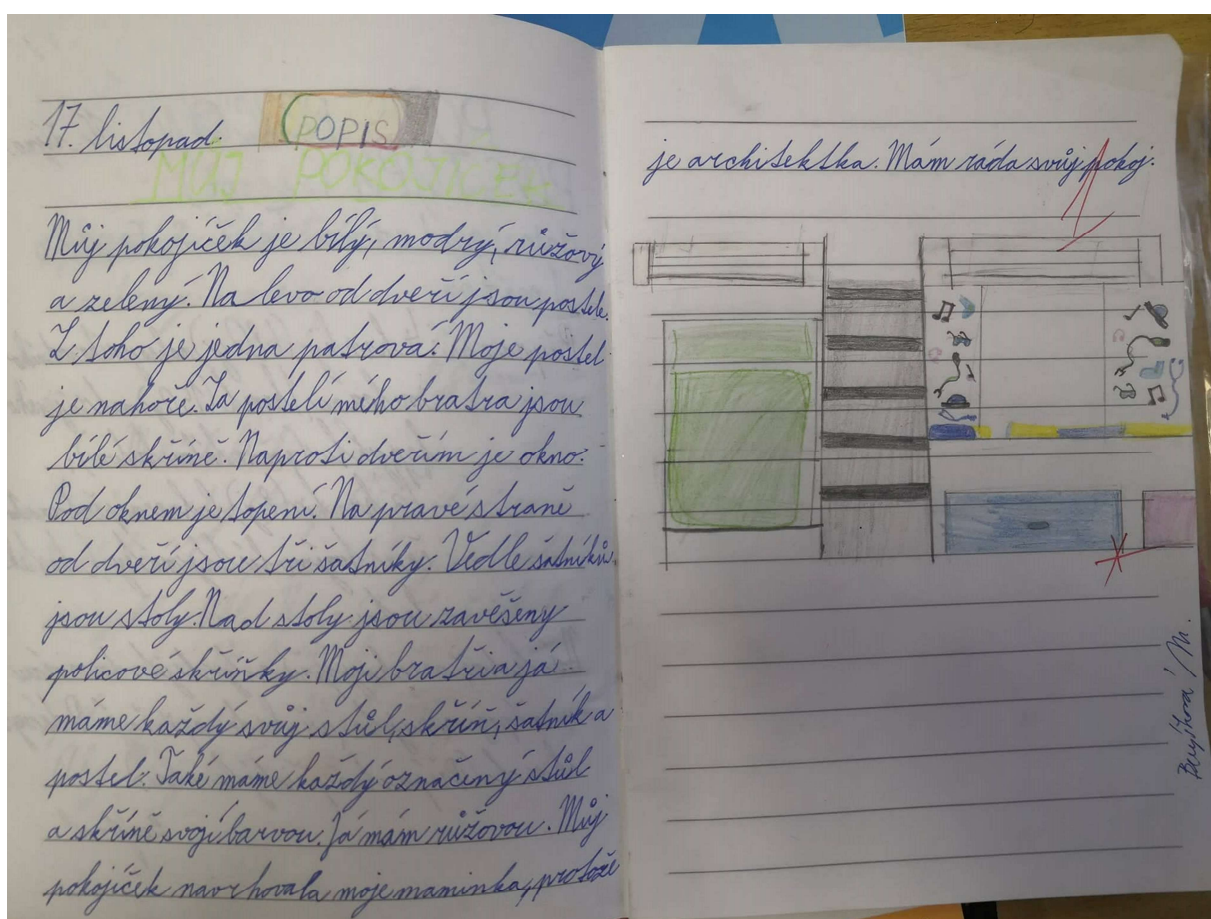 17. listopad.
POPIS
MŮJ POKOJÍČEK
Můj pokojíček je bílý, modrý, růžový
a zelený. Na levo od dveří jsou postele.
Z toho je jedna patrová. Moje postel
je nahoře. Za postelí mého bratra jsou
bílé skříně. Naproti dveřím je okno.
Pod oknem je topení. Na pravé straně
od dveří jsou tři šatníky. Vedle šatníků
jsou stoly. Nad stoly jsou zavěšeny
policové skříňky. Moji bratři a já
máme každý svůj stůl, skříň, šatník a
postel. Také máme každý označený stůl
a skříně svojí barvou. Já mám růžovou. Můj
pokojíček navrhovala moje maminka, protože
je architektka. Mám ráda svůj pokoj.
1